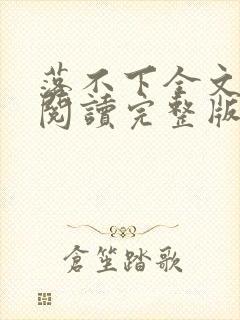 落不下全文
閱讀完整版
倉笙踏歌